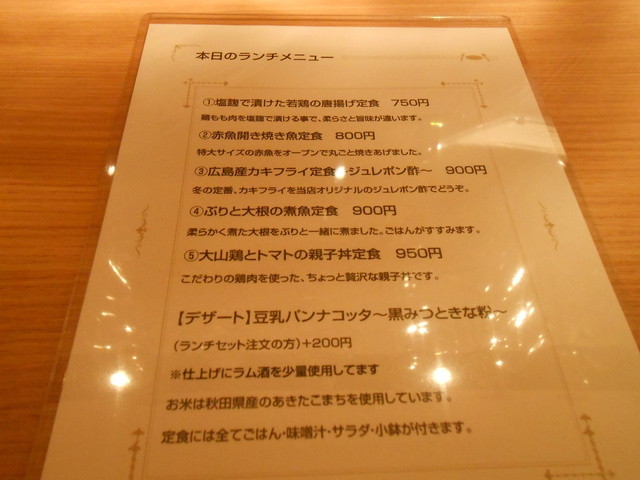 本日のランチメニュー
①塩麹で漬けた若鶏の唐揚げ定食 750円
鶏もも肉を塩麹で漬ける事で、柔らさと旨味が違います。
②赤魚開き焼き魚定食 800円
特大サイズの赤魚をオーブンで丸ごと焼きあげました。
③広島産カキフライ定食～ジュレポン酢～ 900円
冬の定番、カキフライを当店オリジナルのジュレポン酢でどうぞ。
④ぶりと大根の煮魚定食 900円
柔らかく煮た大根をぶりと一緒に煮ました。ごはんがすすみます。
⑤大山鶏とトマトの親子丼定食 950円
こだわりの鶏肉を使った、ちょっと贅沢な親子丼です。
【デザート】豆乳パンナコッタ～黒みつときな粉～
(ランチセット注文の方)+200円
※仕上げにラム酒を少量使用してます
お米は秋田県産のあきたこまちを使用しています。
定食には全てごはん・味噌汁・サラダ・小鉢が付きます。